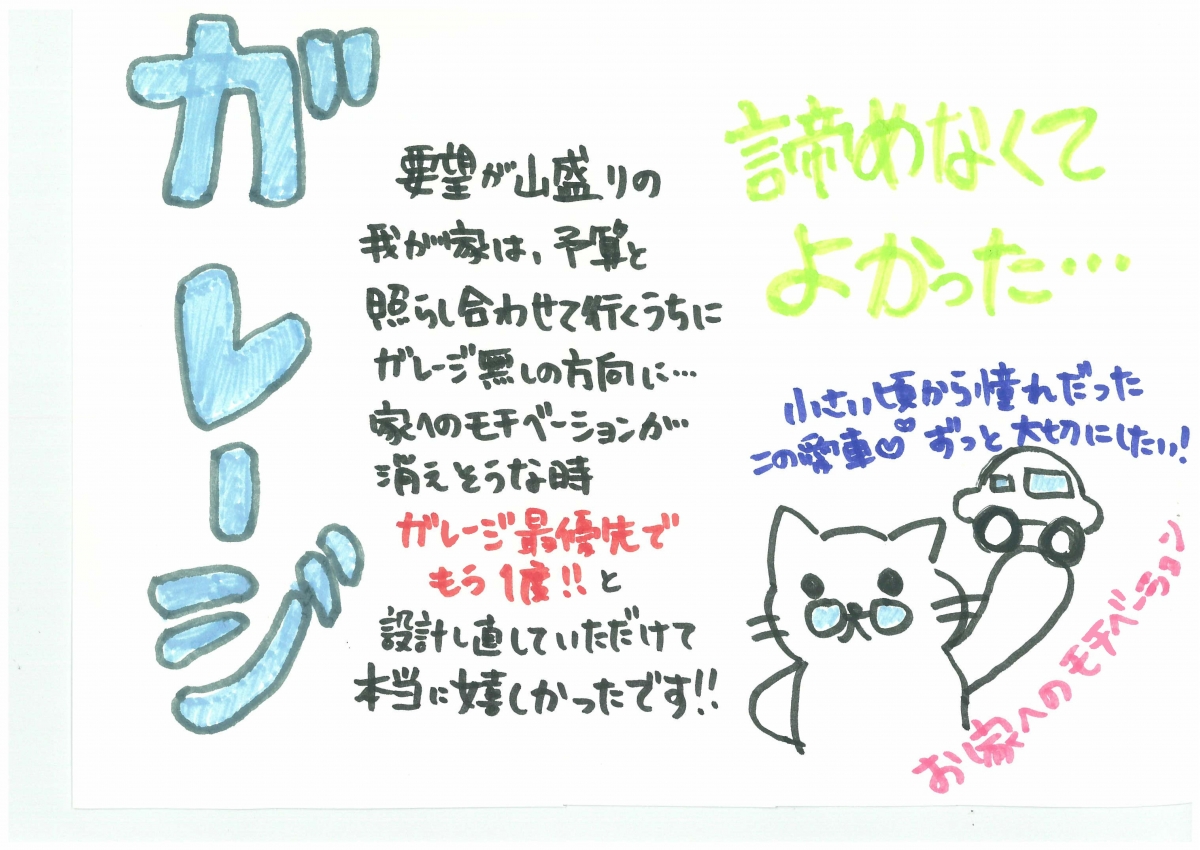 ガレージ
諦めなくて
よかった…
要望が山盛りの
我が家は、予算と
照らし合わせて行くうちに
ガレージ無しの方向に…
家へのモチベーションが…
消えそうな時
ガレージ最優先で
もう1度!!と
設計し直していただけて
本当に嬉しかったです!!
小さい頃から憧れだった
この愛車♡♡ずっと大切にしたい!
お家へのモチベーション